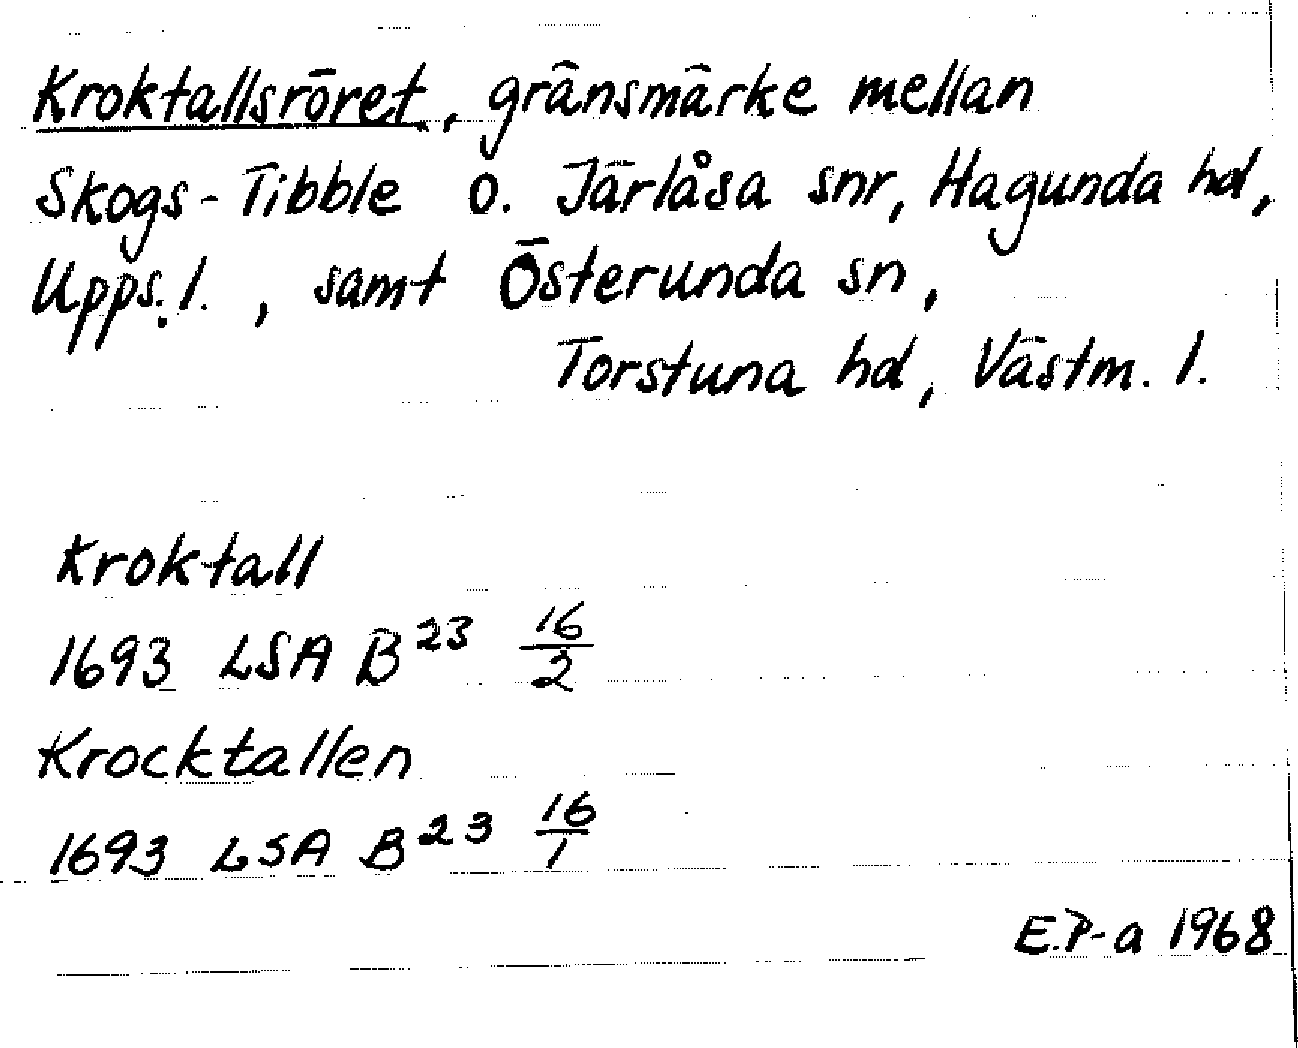 Kroktallsröret, gränsmärke mellan
Skogs-Tibble o. Järlåsa snr, Hagunda hd,
Upps. l., samt Österunda sn,
Torstuna hd, Västm. l.
Kroktall
1693 LSA B²³ 16/2
Krocktallen
1693 LSA B²³ 16/1
E.P-a 1968